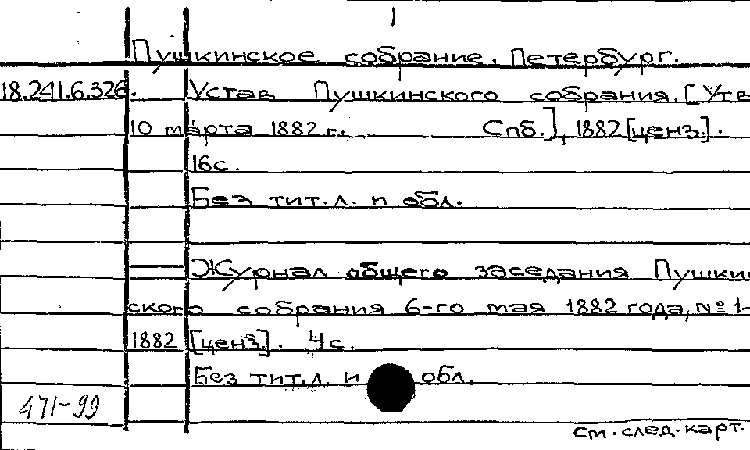 Пушкинское собрание. Петербург.
18.241.6.326. Устав Пушкинского собрания. [Утв
10 марта 1882 г. Спб.], 1882 [ценз.].
16с.
Без тит. л. и обл.
— Журнал общего заседания Пушкин
ского собрания 6-го мая 1882 года, № 1-
1882 [ценз.]. 4с.
Без тит. л. и обл.
471-99
см. след. карт.